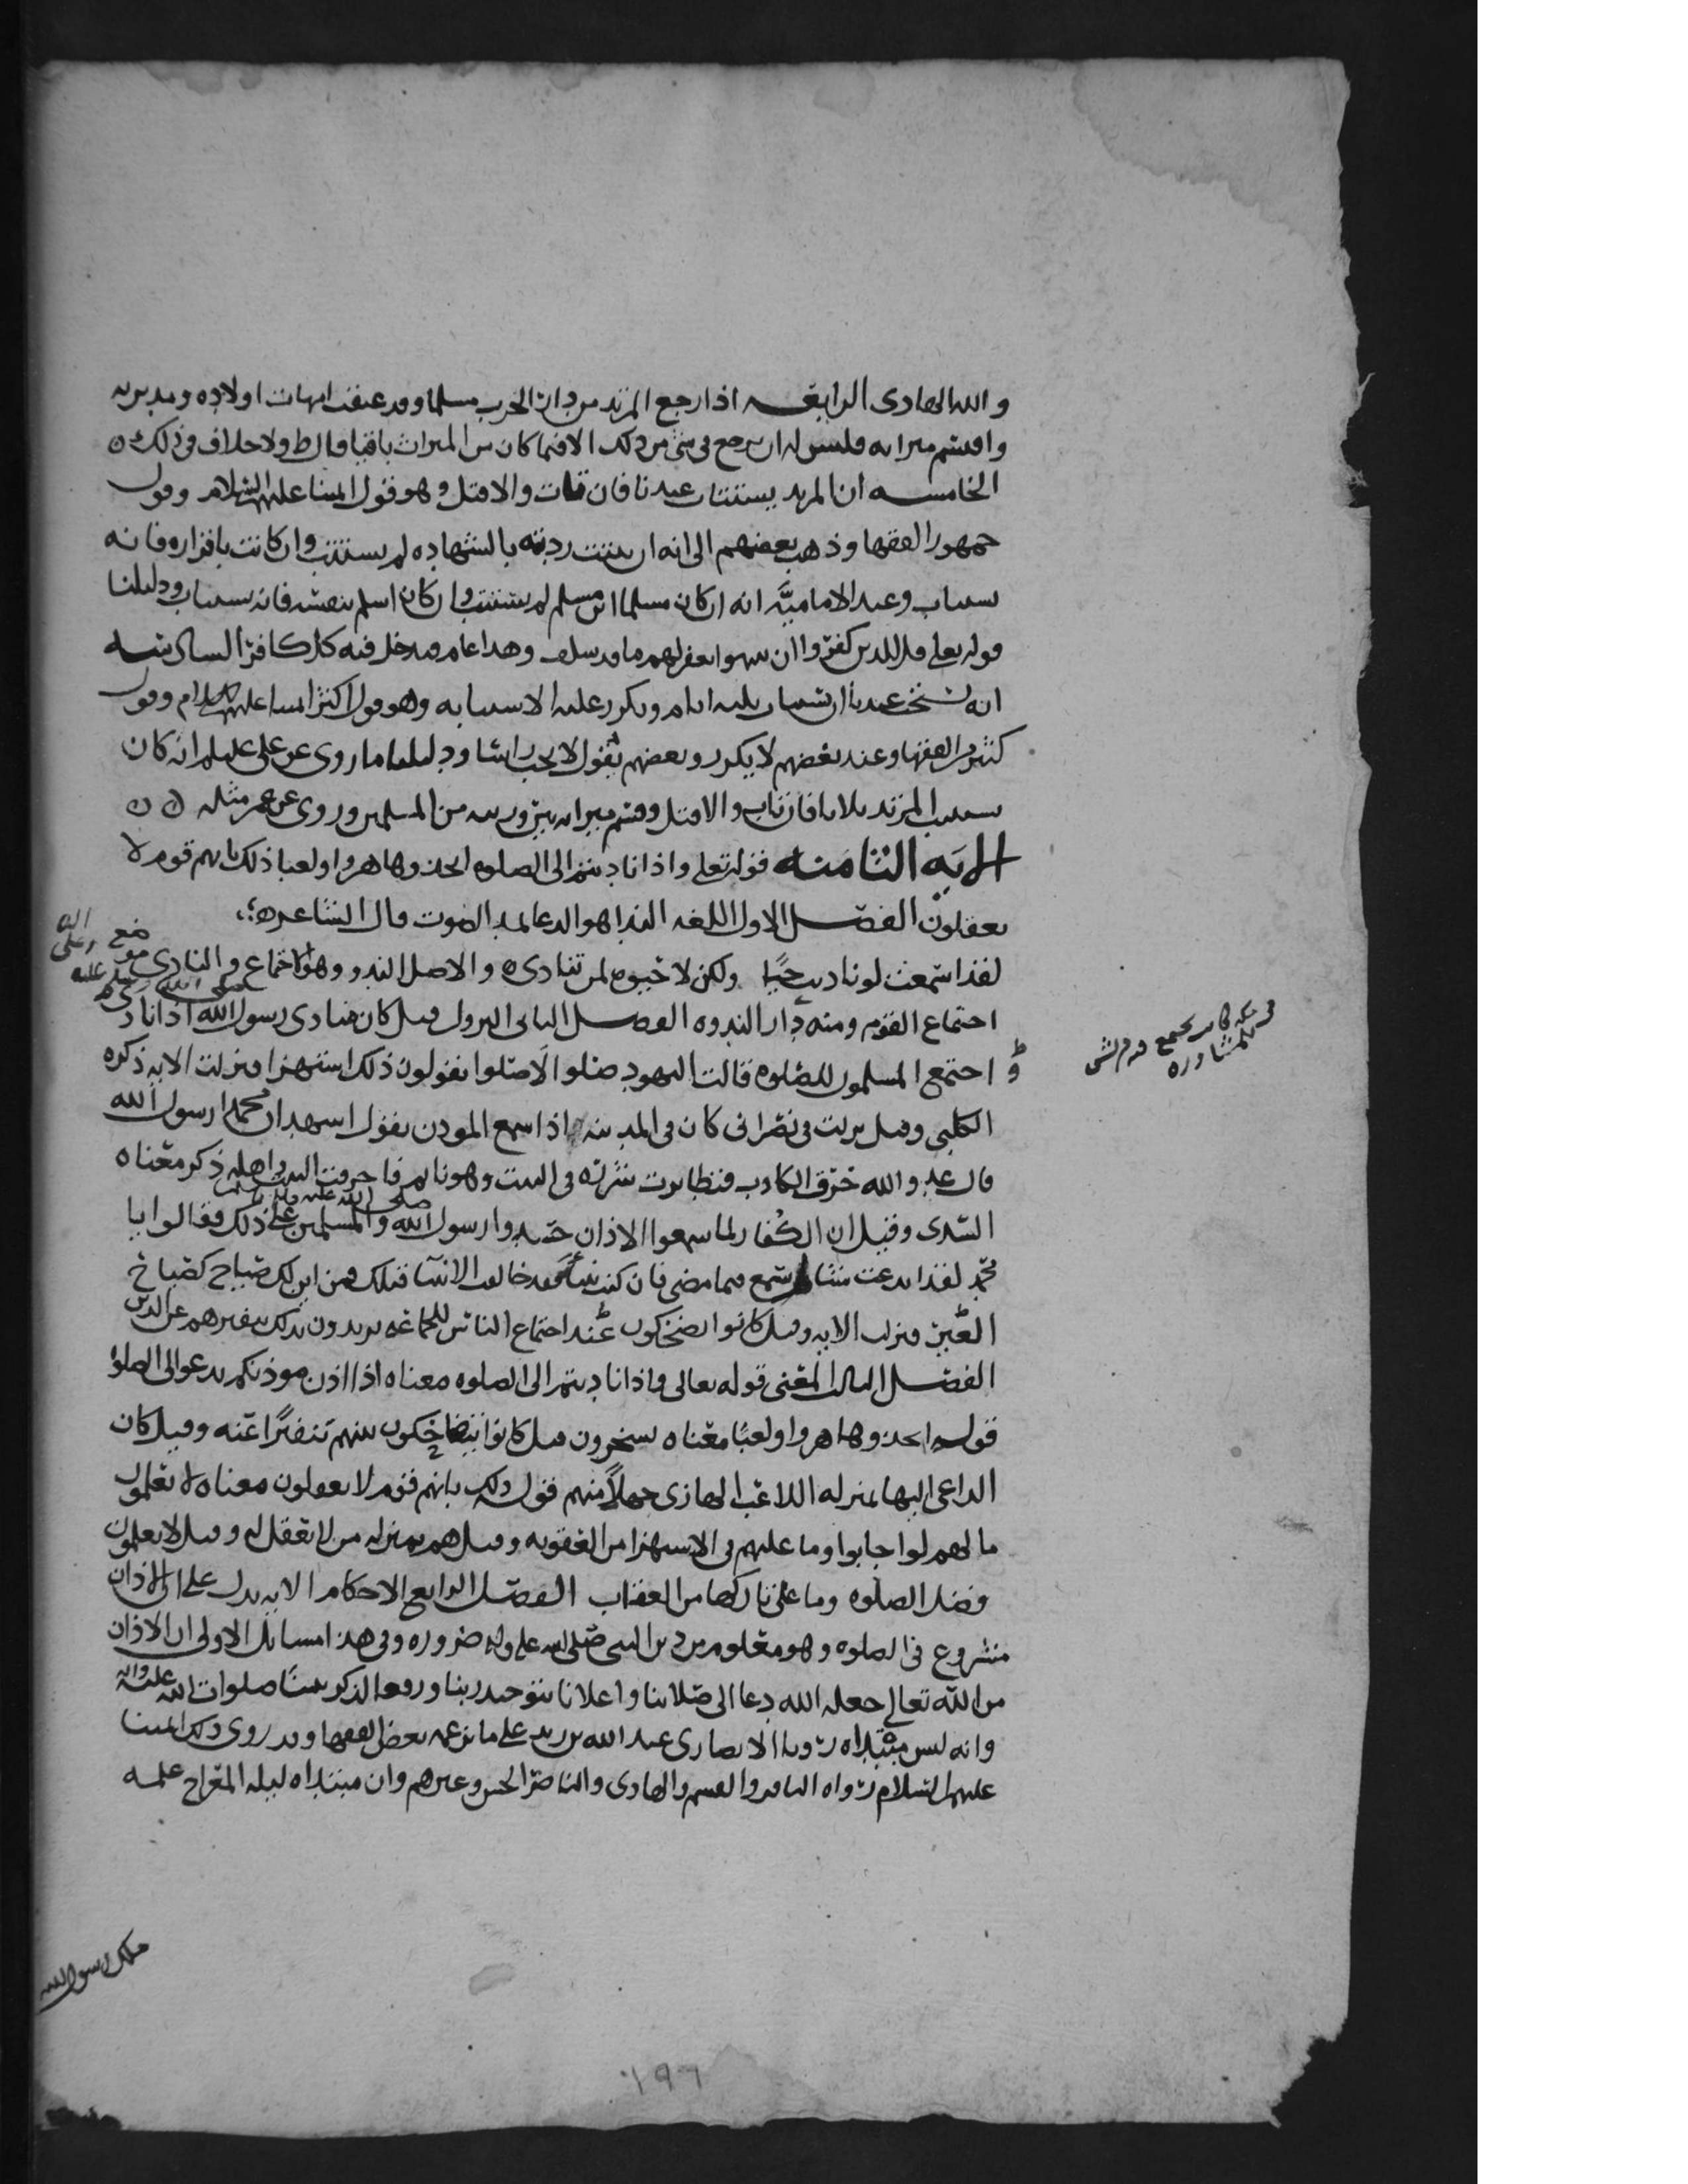 والله الهادى الرابعه اذا رجع المرتد من دار الحرب مسلما وقد عتقت امهات اولاده ومدبريه
واقتسم ميراثه فليس له ان يرجع فى شى من ذلك الا فيما كان من الميراث باقيا قال ط ولا خلاف فى ذلك ه
الخامسه ان المرتد يستتاب عندنا فان تاب والا قتل وهو قول ائمتنا عليهم السلام وقول
جمهور الفقها وذهب بعضهم الى انه ان ثبتت ردته بالشهاده لم يستتب وان كانت باقراره فانه
يستتاب وعند الاماميه انه ان كان مسلما ابن مسلم لم يستتب وان كان اسلم بنفسه فانه يستتاب ودليلنا
قوله تعالى قل للذين كفروا ان ينتهوا يغفر لهم ما قد سلف وهذا عام فيدخل فيه كل كافر السادسه
انه يستحب عندنا ان يستتاب ثلثه ايام ويكرر عليه الاستتابه وهو قول اكثر ائمتنا عليهم السلام وقول
كثير من الفقها وعند بعضهم لا يكرر وبعضهم يقول لا يجب ودليلنا ما روى عن على عليلم انه كان
يستتيب المرتد ثلاثا فان تاب والا قتل وقسم ميراثه بين ورثته من المسلمين وروى عن عمر مثله ه ه
الايه الثامنه قوله تعلى واذا ناديتم الى الصلوه اتخذوها هزوا ولعبا ذلك بانهم قوم لا
يعقلون الفصل الاول اللغه الندا هو الدعا بمد الصوت قال الشاعر ه
لقد اسمعت لو ناديت حيا ولكن لا حيوه لمن تنادى ه والاصل الندو وهو الاجتماع والنادى موضع
اجتماع القوم ومنه دار الندوه الفصل الثانى النزول قيل كان منادى رسول الله صلى الله عليه وعلى اله اذا نادى
فى مكه كانت تجتمع فيه قريش
للمشاوره
و اجتمع المسلمون للصلوه قالت اليهود صلوا لا صلوا يقولون ذلك استهزا فنزلت الايه ذكره
الكلبى وقيل نزلت فى نصرانى كان فى المدينه اذا سمع المؤذن يقول اشهد ان محمدا رسول الله
قال عدو الله حرق الكاذب فتطايرت شررة فى البيت وهو نايم فاحرقت البيت واهله ذكر معناه
السدى وقيل ان الكفار لما سمعوا الاذان حسدوا رسول الله صلى الله عليه واله وسلم والمسلمين على ذلك فقالوا يا
محمد لقد ابدعت شيا لم يسمع فيما مضى فان كنت نبيا فقد خالفت الانبيا قبلك فمن اين لك صياح كصياح
العير فنزلت الايه وقيل كانوا يضحكون عند اجتماع الناس للجماعه يريدون بذلك تنفيرهم عن الدين
الفصل الثالث المعنى قوله تعالى واذا ناديتم الى الصلوه معناه اذا اذن موذنكم يدعو الى الصلوه
قوله اتخذوها هزوا ولعبا معناه يسخرون قيل كانوا يتضاحكون بينهم تنفيرا عنه وقيل كان
الداعى اليها بمنزله اللاعب الهازى جهلا منهم قوله ذلك بانهم قوم لا يعقلون معناه لا يعلمون
ما لهم لو اجابوا وما عليهم فى الاستهزا من العقوبه وقيل هم بمنزله من لا عقل له وقيل لا يعلمون
فضل الصلوه وما على تاركها من العقاب الفصل الرابع الاحكام الايه تدل على ان الاذان
مشروع فى الصلوه وهو معلوم من دين النبى صلى الله عليه واله ضروره وفى هذا مسايل الاولى ان الاذان
من الله تعالى جعله الله دعا الى صلاتنا واعلانا بتوحيد ربنا ورفعا لذكر نبينا صلوات الله عليه واله
وانه ليس مبتداه رويا الانصارى عبد الله بن زيد على ما زعمه بعض الفقها وقد روى ذلك ائمتنا
عليهم السلام رواه الباقر والقسم والهادى والناصر الحسن وغيرهم وان مبتداه ليله المعراج علمه
ملك رسول الله
١٩٦